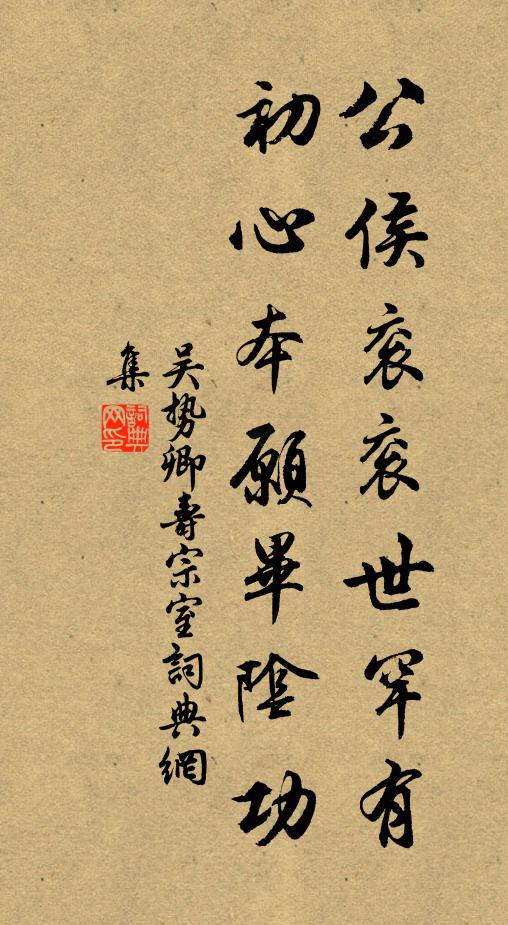 公侯衮衮世罕有
初心本願畢陰功
吴势卿壽宗室詞典網
集
詞典网印